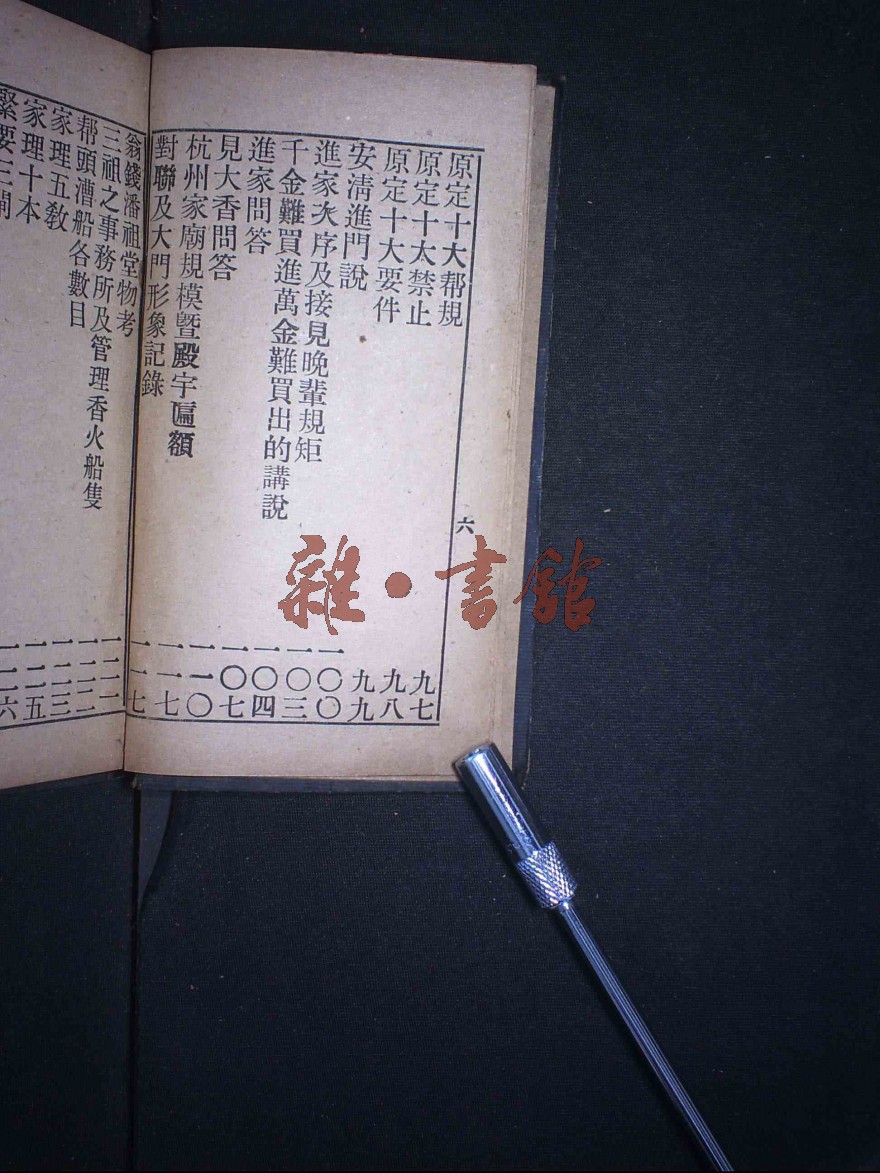 原定十大帮規 九七
原定十大禁止 九八
原定十大要件 九九
安清進門說 一〇〇
進家次序及接見晚輩規矩 一〇三
千金難買進萬金難買出的講說 一〇四
進家問答 一〇七
見大香問答 一一〇
杭州家廟規模暨殿宇匾額 一一七
對聯及大門形象記錄 一一七
六
翁錢潘祖堂物考 一二一
三祖之事務所及管理香火船隻 一二二
帮頭漕船各數目 一二三
家理五教 一二五
家理十本 一二六
緊要三閘
雜·書館